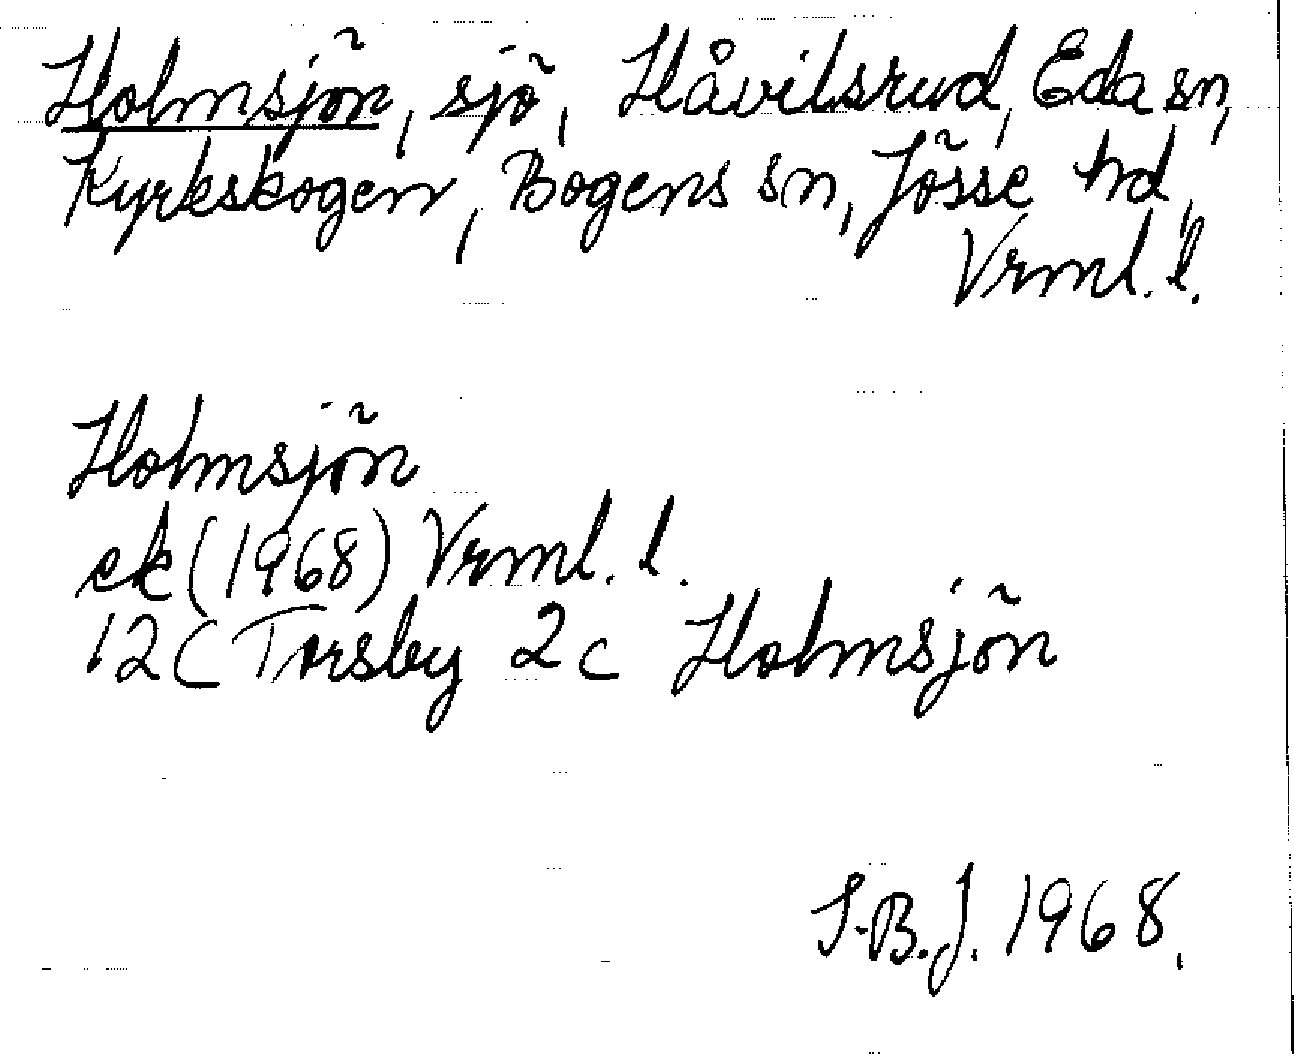 Holmsjön, sjö, Håvilsrud, Eda sn,
Kyrkskogen, Bogens sn, Jösse hd,
Vrml. l.
Holmsjön
ek (1968) Vrml. l.
12C Torsby 2c Holmsjön
S.B.J. 1968.